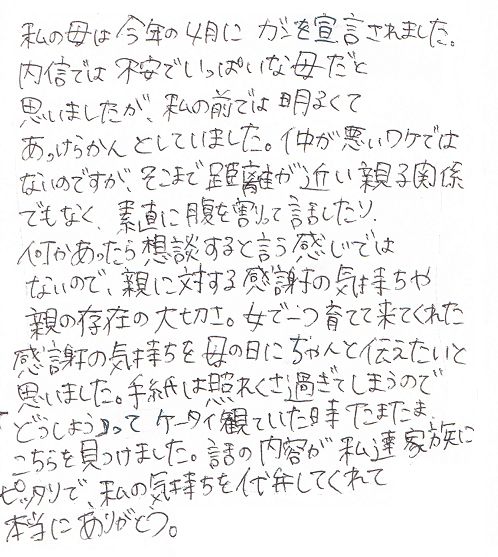 私の母は今年の4月にガンを宣言されました。
内信では不安でいっぱいな母だと
思いましたが、私の前では明るくて
あっけらかんとしていました。仲が悪いワケでは
ないのですが、そこまで距離が近い親子関係
でもなく、素直に腹を割って話したり、
何かあったら想談すると言う感じでは
ないので、親に対する感謝の気持ちや
親の存在の大切さ。女で一つ育てて来てくれた
感謝の気持ちを母の日にちゃんと伝えたいと
思いました。手紙は照れくさ過ぎてしまうので
どうしようって ケータイ観ていた時たまたま
こちらを見つけました。話の内容が私達家族に
ピッタリで、私の気持ちを代弁してくれて
本当にありがとう。